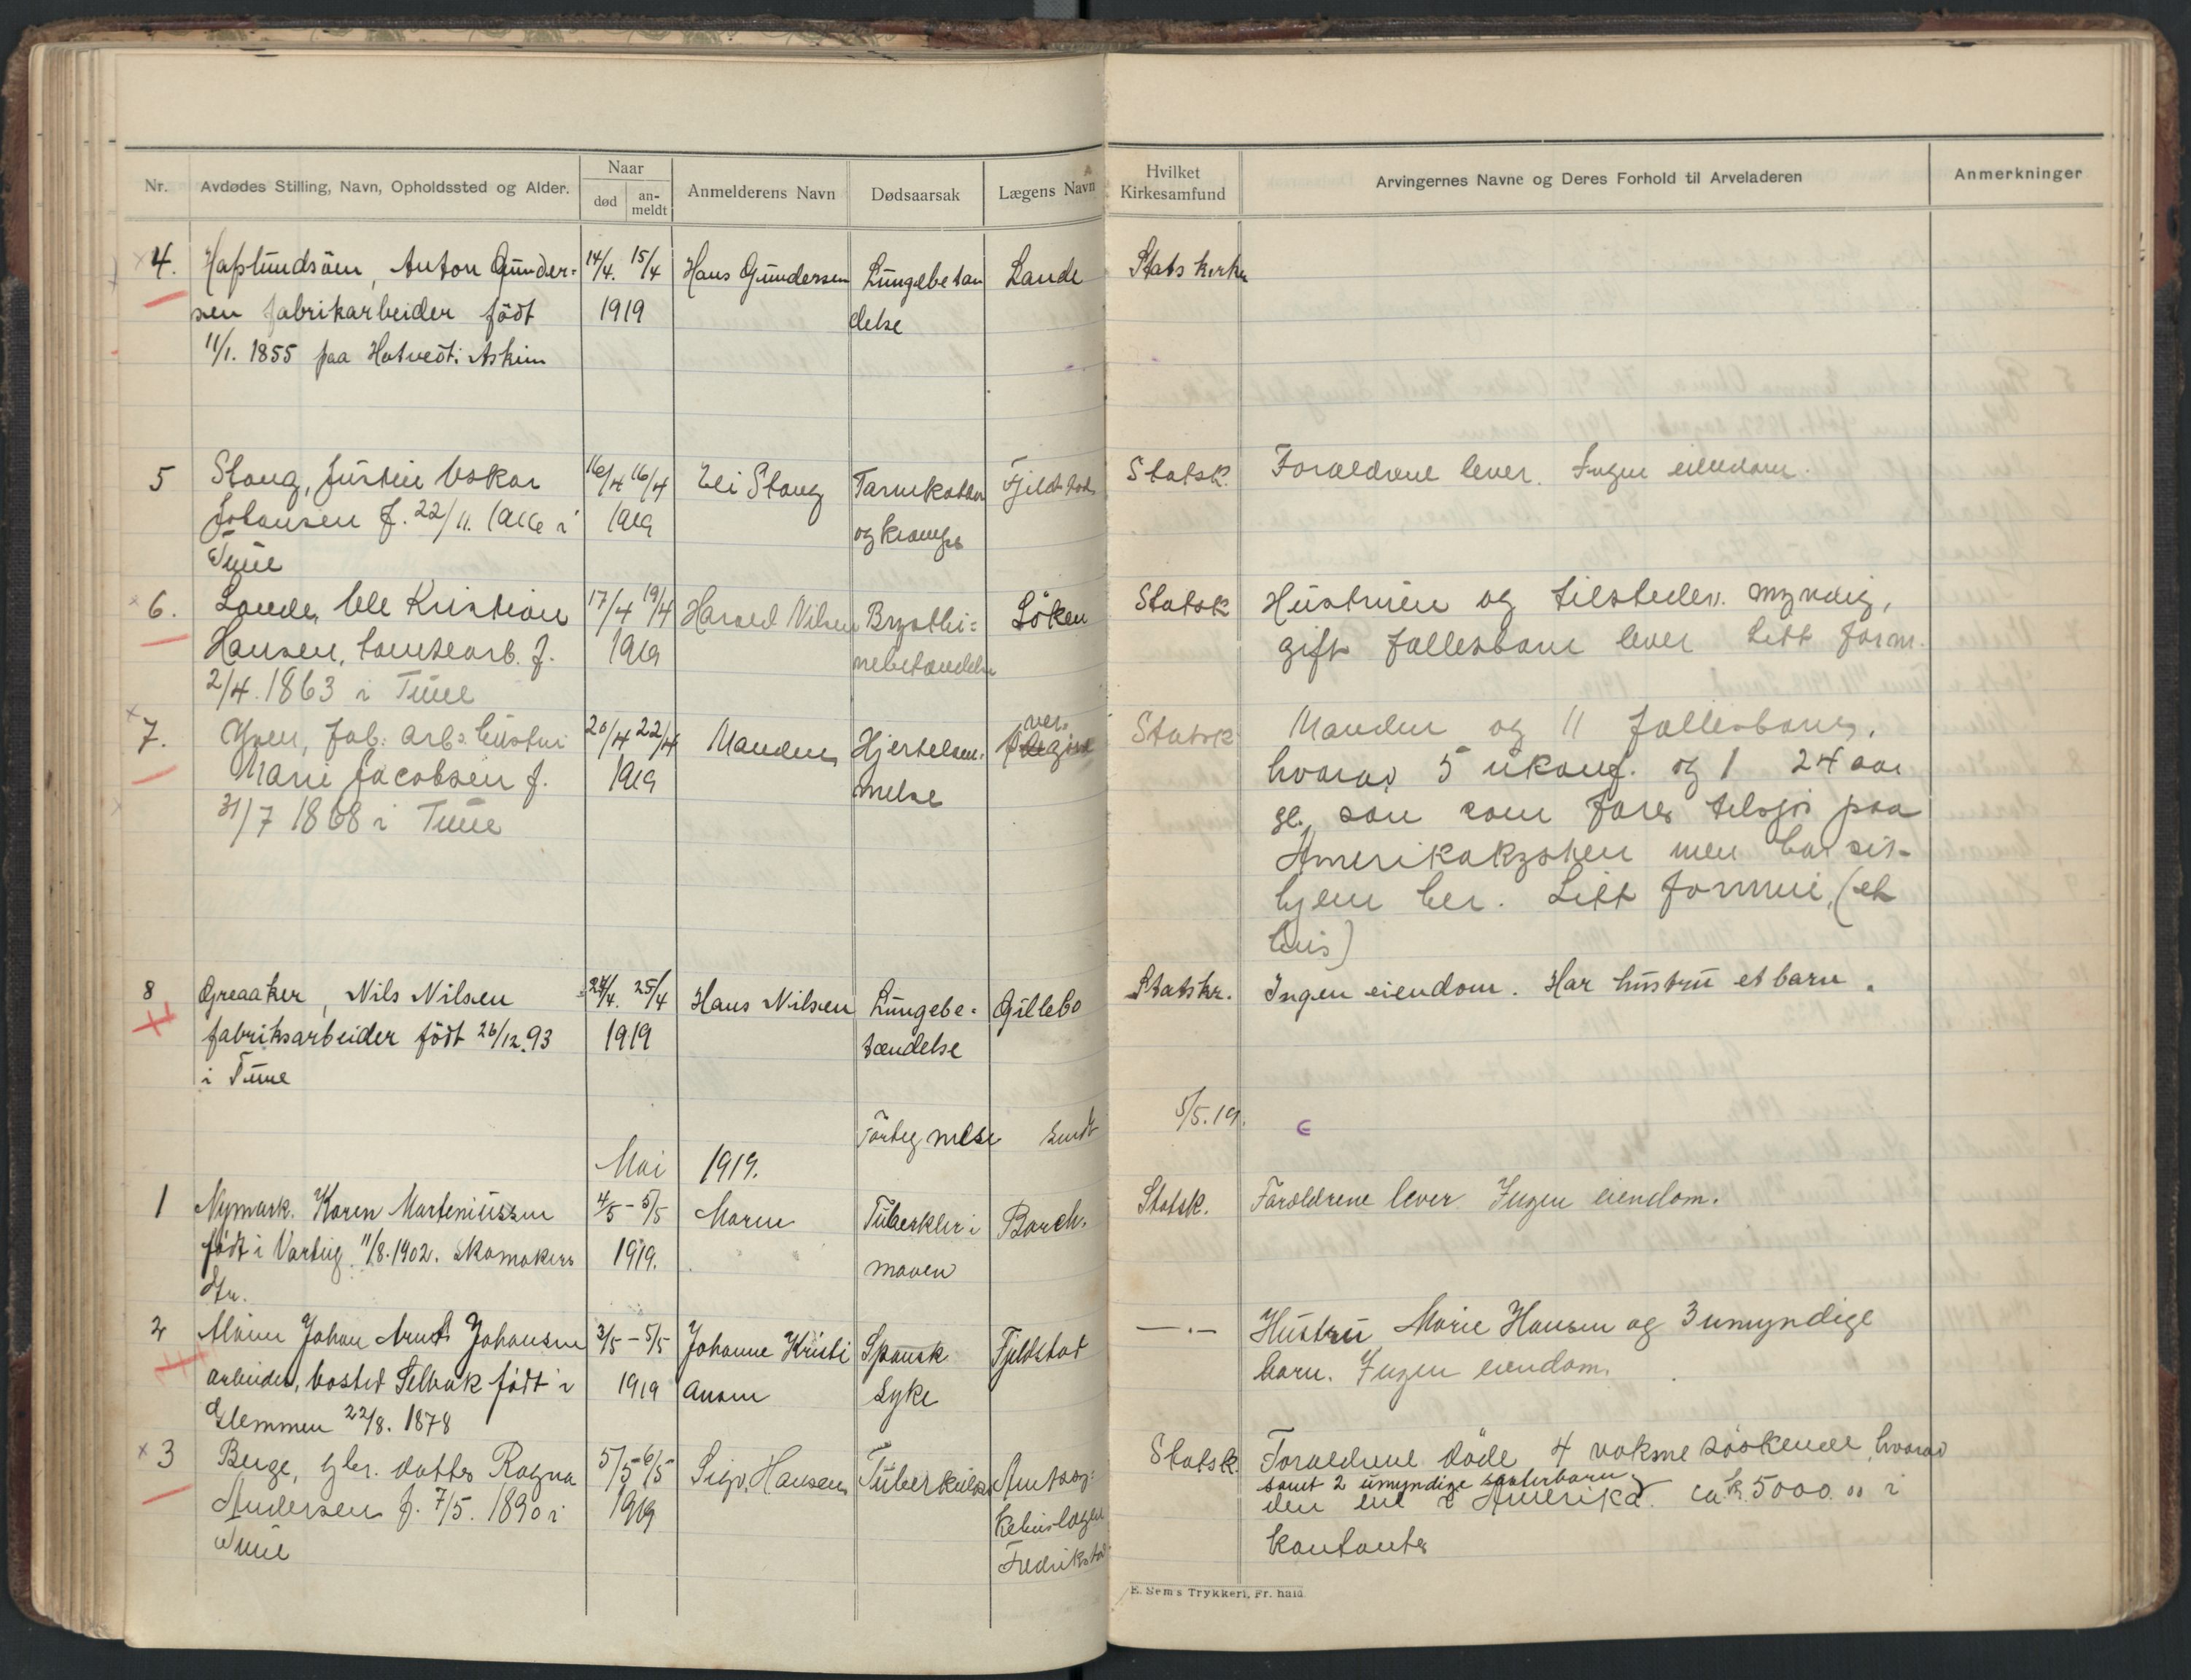 Nr.
Avdødes Stilling, Navn, Opholdssted og Alder.
Naar
død
an-
meldt
Anmelderens Navn
Dødsaarsak
Lægens Navn
Hvilket
Kirkesamfund
Arvingernes Navne og Deres Forhold til Arveladeren
Anmerkninger
4. Hafslundsöen, Anton Gunder= 14/4. 15/4 Hans Gundersen Lungebetæn Lande Statskirke
sen fabrikarbeider født 1919 delse
11/1. 1855 paa Askim
5 Stang, Justin Oskar 16/4 16/4 Eli Stang Tarmkatar Fjeldstad Statsk. Forældrene lever. Ingen eiendom.
Johansen f. 22/11. 1916 i 1919 og krampe
Tune
6. Lande, Ole Kristian 17/4 19/4 Harald Nilsen Löken Statsk Hustruen og tilstedev. myndig,
Hansen, tomtearb. f. 1919 nebetændelse gift fællesbarn lever Litt form.
2/4. 1863 i Tune
7. Yven, fab. arb. hustru 20/4 22/4 Manden Hjertelam- Statsk Manden og 11 fællesbarn,
Marie Jacobsen f. 1919 melse hvorav 5 ukonf. og 1 24 aar
31/7 1868 i Tune gl. søn som farer tilsjøs paa
Amerikakysten men har sit
hjem her. Litt formue, (et
hus)
8 Greaaker, Nils Nilsen 24/4. 25/4 Hans Nilsen Lungebe- Gillebo Statskr. Ingen eiendom. Har hustru et barn.
fabriksarbeider født 26/12.93 1919 tændelse
i Tune
Fortegnelse sendt 5/5.19.
Mai 1919.
1 Nymark. Karen Marteniussen 4/5 - 5/5 Moren Tuberkler i Borch. Statsk. Forældrene lever Ingen eiendom.
født i Varteig 11/8.1902. skomakers 1919. maven
dtr.
2 Alvim Johan Arnt Johansen 3/5 - 5/5 Johanne Kristi Spansk Fjeldstad —.— Hustru Marie Hansen og 3 umyndige
arbeider, bosted Selbak født i 1919 ansen Syke barn. Ingen eiendom.
Glemmen 22/8. 1878
3 Berge, gbr. datter Ragna 5/5 6/5 Sigv. Hansen Tuberkulose Amtssy- Statsk. Forældrene døde 4 voksne søskende, hvorav
samt 2 umyndige søsterbarn
Andersen f. 7/5. 1890 i 1919 kehuslægen den ene i Amerika. ca. k. 5000.00 i
Tune Fredrikstad kontanter
E. Sem's Trykkeri, Fr. hald